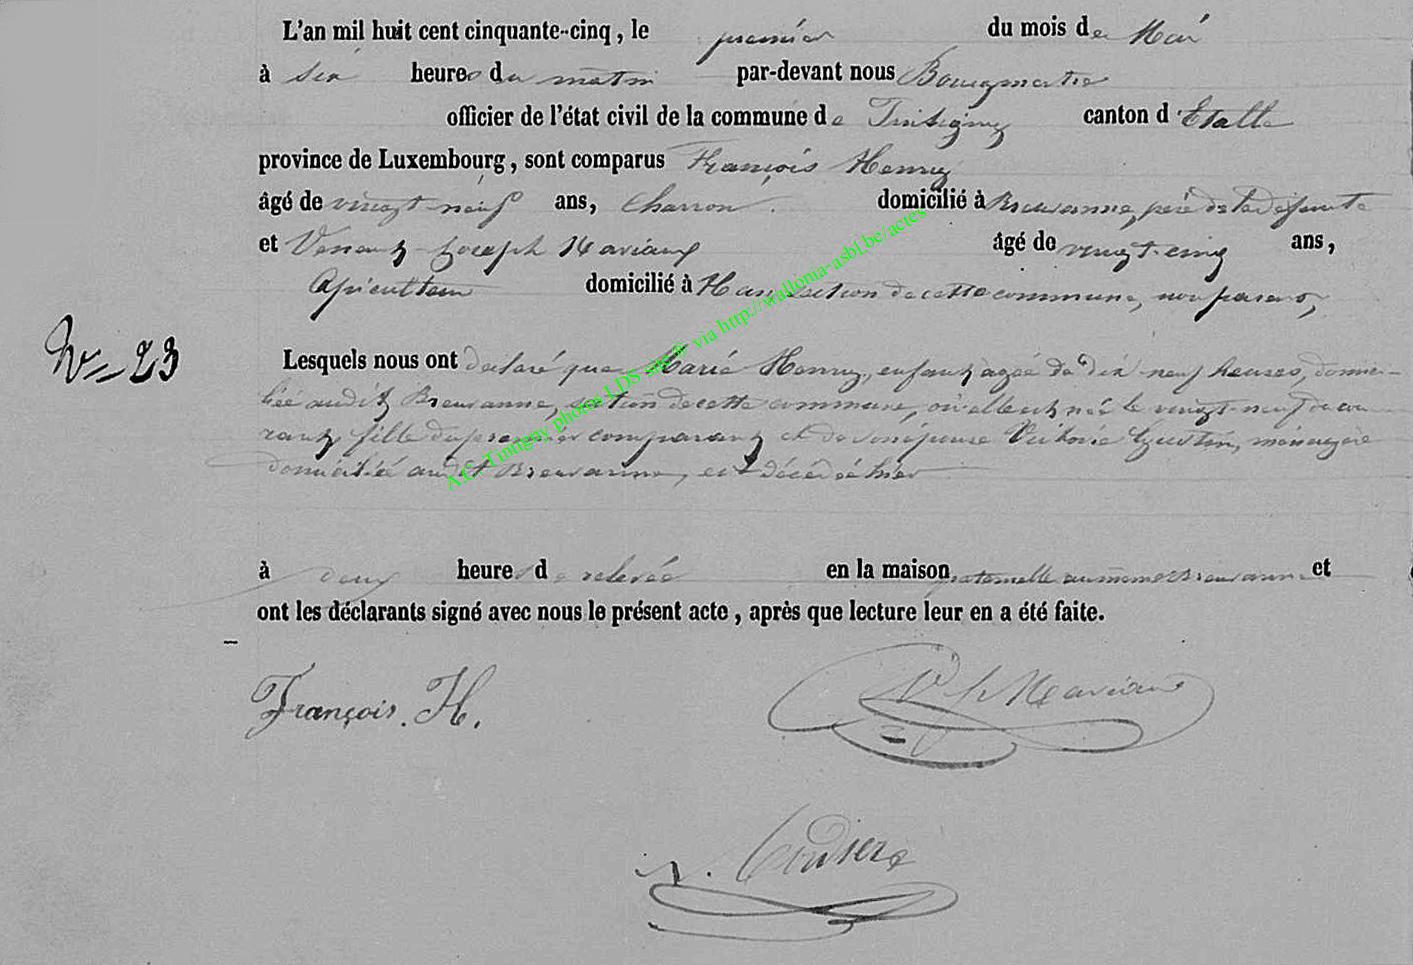 L'an mil huit cent cinquante-cinq, le premier du mois de Mai
à six heures du matin par-devant nous Bourgmestre
officier de l'état civil de la commune de Tintigny canton d'Etalle
province de Luxembourg, sont comparus François Henry
âgé de vingt-neuf ans, Charron domicilié à Breuvanne, père de la défunte
et Joseph âgé de vingt-cinq ans,
domicilié à Han, section de cette commune, non parent,
N= 23
Lesquels nous ont déclaré que Marie Henry, enfant agée de dix neuf heures, domici-
liée audit Breuvanne, section de cette commune, où elle est née le vingt-neuf du cou-
rant, fille du premier comparant et de son épouse ménagère
domiciliée audit Breuvanne, est décédée hier
à deux heures de relevée en la maison paternelle au même Breuvanne et
ont les déclarants signé avec nous le présent acte, après que lecture leur en a été faite.
François. H.
A.C. Tintigny photos LDS via http://wallonia-asbl.be/actes